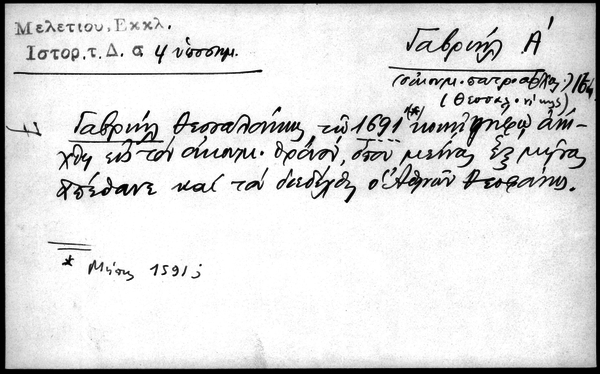 Μελετίου, Εκκλ.
Ιστορ. τ. Δ. σ 4 ὑποσημ.
Γαβριήλ Α΄
(οἰκουμ. πατριάρχης)
(Θεσσαλονίκης)
Γαβριήλ Θεσσαλονίκης τῷ 1691 (*) ἀνή-
χθη εἰς τόν οἰκουμ. θρόνον, ὅπου μείνας ἕξ μῆνας
ἀπέθανε καί τόν διεδέχθη ὁ Ἀθηνῶν Θεοφάνης.
* Μήπως 1591;